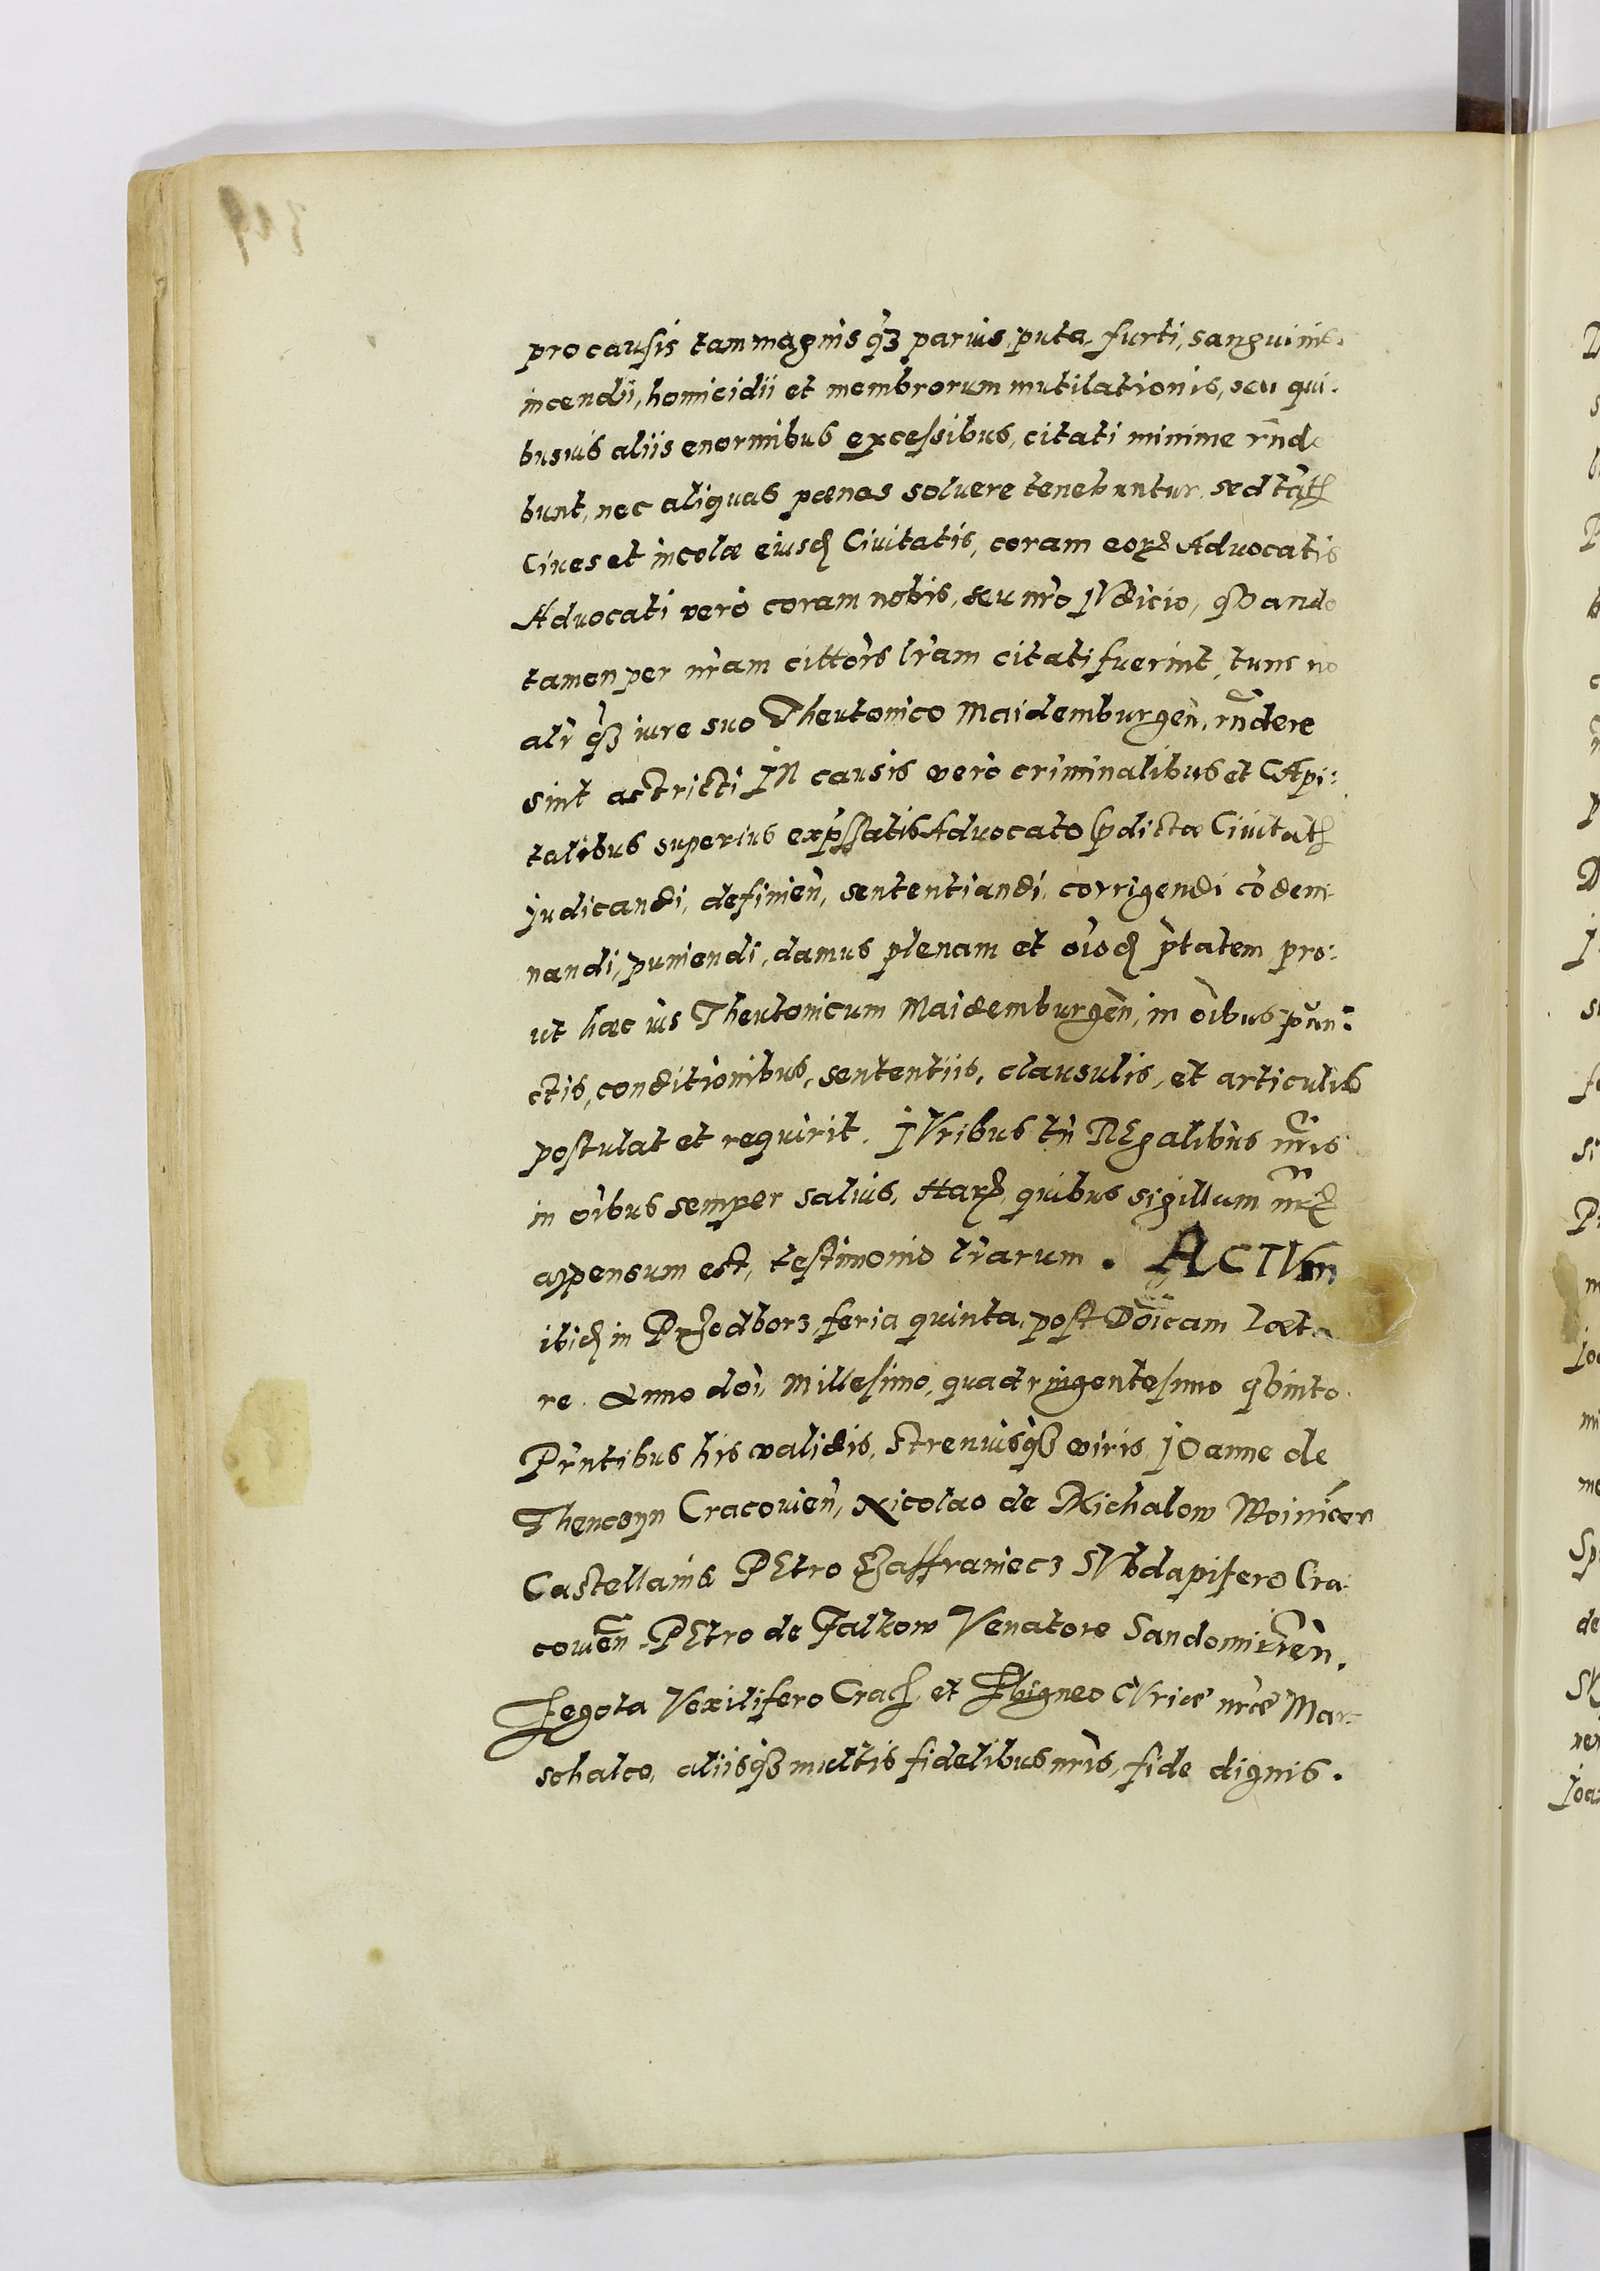 pro causis tam magnis q̃ʒ paruis, puta, furti, sanguinis.
incendii, homicidii et membrorum mutilationis, seu qui-
busuis aliis enormibus excessibus, citati minime rñde
bunt, nec aliquas pœnas soluere tenebuntur. sed tãtʒ
Ciues et incolæ eiusdʒ Ciuitatis, coram eorʒ Aduocatis
Aduocati verò coram nobis, seu nr̃o IVdicio, qVando
tamen per nr̃am citt̃oris lr̃am citati fuerint, tunc no
alr̃ q̃ʒ iure suo Theutonico Maidemburgeñ, rñdere
sint astricti IN causis verò criminalibus et CApi:
talibus superius exp̃ssatis Aduocato p̃dictæ Ciuitatʒ
judicandi, definieñ, sententiandi, corrigendi cõdem
nandi, puniendi, damus plenam et oĩodʒ p̃tatem pro:
ut hæc ius Theutonicum Maidemburgeñ, in oĩbus pũn:
ctis, conditionibus, sententiis, clausulis, et articulis
postulat et requirit. IVribus tñ REgalibus nr̃is
in oĩbus semper saluis, Harʒ, quibus sigillum nr̃ʒ
appensum est, testimonio lr̃arum. ACTVm
ibidʒ in Przedborz, feria quinta, post Dõicam Læta
re. Anno dõi, Millesimo, quadringentesimo qVinto.
Pr̃ntibus his validis, strenuisqʒ viris, IOanne de
Thencзyn Cracouieñ, Nicolao de Michalow Woinicen
Castellanis PEtro Szaffraniecз SVbdapifero Cra
couieñ. PEtro de Falkow Venatore Sandomirieñ.
Zegota Vexilifero Cracʒ, et Zbigneo CVriæ nr̃æ Mar-
schalco, aliisqʒ multis fidelibus nr̃is, fide dignis.